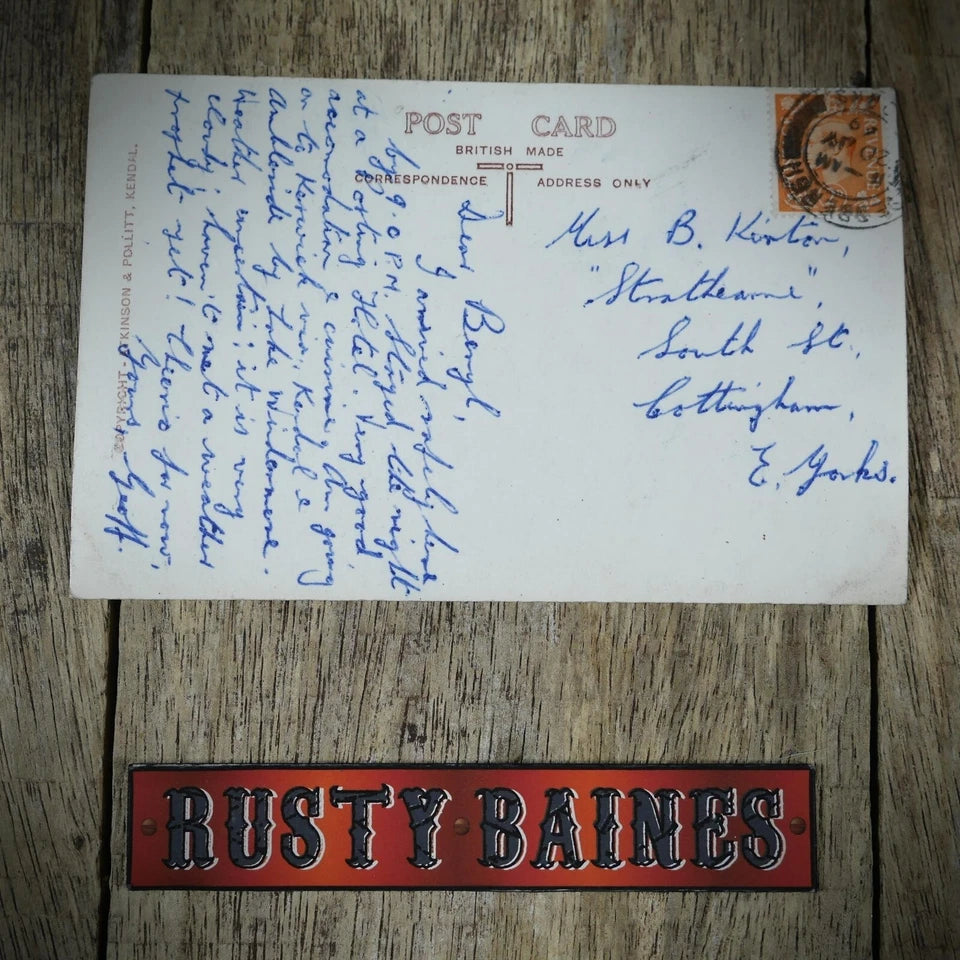 POST CARD
BRITISH MADE
CORRESPONDENCE
ADDRESS ONLY
COPYRIGHT - ATKINSON & POLLITT, KENDAL.
Dear Beryl,
I arrived safely here
by 9.0 P.M. Stayed last night
at a Posting Hotel. Very good
accomodation & cuisine, Am going
on to Keswick via. Kendal &
Ambleside by Lake Windermere.
Weather uncertain; it is very
cloudy; haven't met a weather
prophet yet! Cheerio for now,
Yours, Geoff.
Miss B. Kirton,
"Strathearne",
South St.,
Cottingham,
E. Yorks.
RUSTY BAINES